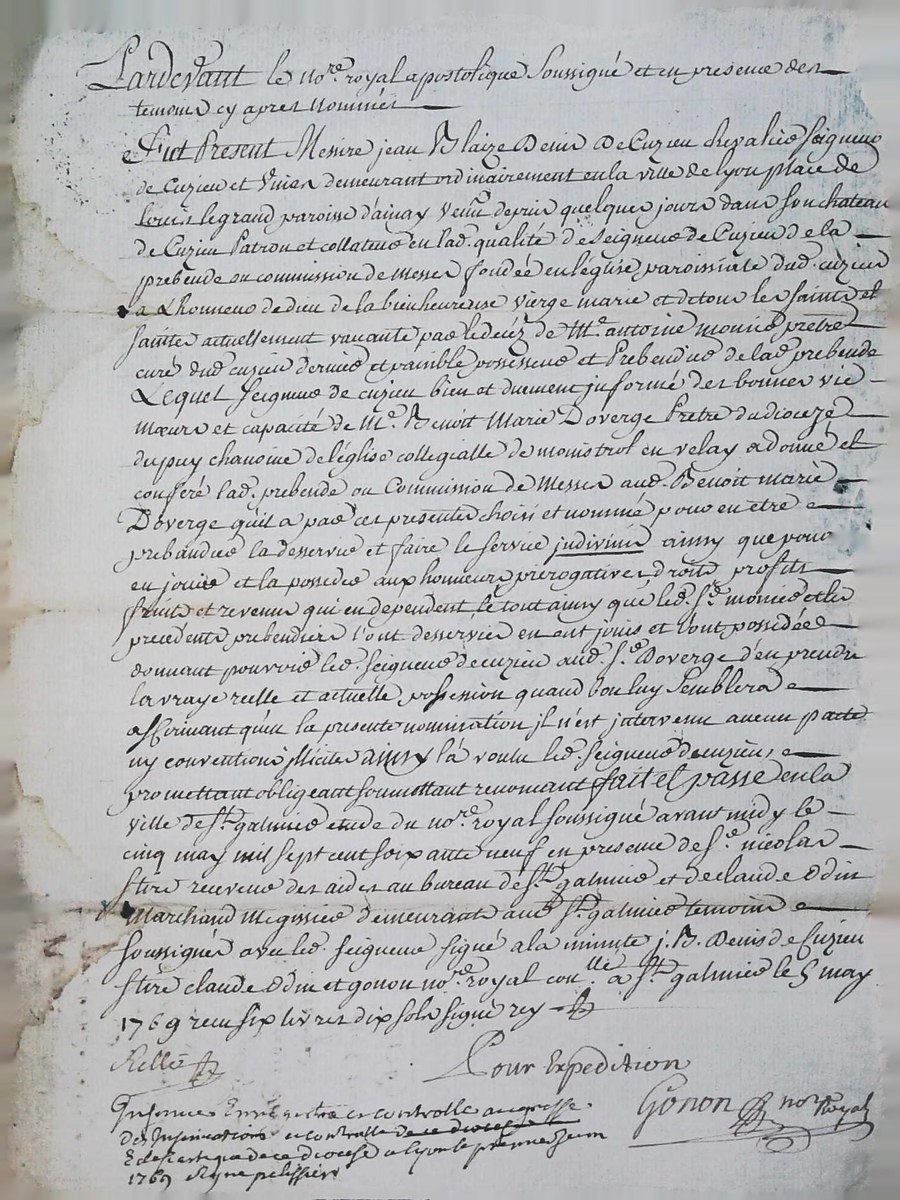 Pardevant le no.re royal apostolique soussigné et en presence des
temoins cy apres nommés
Fut Present Messire jean Blaize Denis De Cuzieu chevalier seigneur
de Cuzieu et Unias demeurant ordinairement en la ville de lyon place de
Louis le grand paroisse d'ainay venu depuis quelques jours dans son chateau
de Cuzieu Patron et collateur en lad. qualité de seigneur de Cuzieu de la
prebende ou commission de messes fondée en l'église paroissiale dud. cuzieu
a L'honneur de dieu de la bienheureuse vierge marie et de tous les saints et
saintes actuellement vacante par le decéz de M.e antoine monier prêtre
curé dud cuzieu dernier et paisible possesseur et Prebendier de lad. prebende
Lequel seigneur de cuzieu bien et duement jnformé des bonnes vie
mœurs et capacité de M.e Benoit Marie Doverge Prêtre du diocéze
du puy chanoine de l'église collegialle de monistrol en velay a donné et
conferé lad. prebende ou Commission de Messes aud. Benoit marie
Doverge qu'il a par ces presentes choisi et nommé pour en etre
prebandier la desservir et faire le service judivinis ainsy que pour
en jouir et la posseder aux honneurs prérogatives droits profits
fruits et revenus qui en dependent le tout ainsy que led. s.r monier et les
precedents prebendiers l'ont desservie en ont jouis et l'ont possédée
donnant pouvoir led. seigneur de cuzieu aud. s.r Doverge d'en prendre
la vraye réelle et actuelle possession quand bon luy semblera
affirmant qu'en la presente nomination jl n'est jntervenu aucun pacte
ny convention jllicite ainsy l'a voulu led. seigneur de cuzieu
promettant obligeant soumettant renonçant fait et passé en la
ville de s.t galmier etude du no.re royal soussigné avant midy le
cinq may mil sept cent soixante neuf en presence de s.r nicolas
stire receveur des aides au bureau de s.t galmier et de claude odin
Marchand megissier demeurant aud. s.t galmier temoins
soussignés avec led. seigneur signé a la minute j. B. Denis de Cuzieu
stire claude odin et gonon no.re royal con.llé a s.t galmier le 5 may
1769 reçu six livres dix sols signé rey
Pour Expedition
Gonon no.re Royal
Insinué Enregistré et controllé au greffe
des Insinuations
de ce diocese a lyon le premier Juin
1769 Signé pelissier